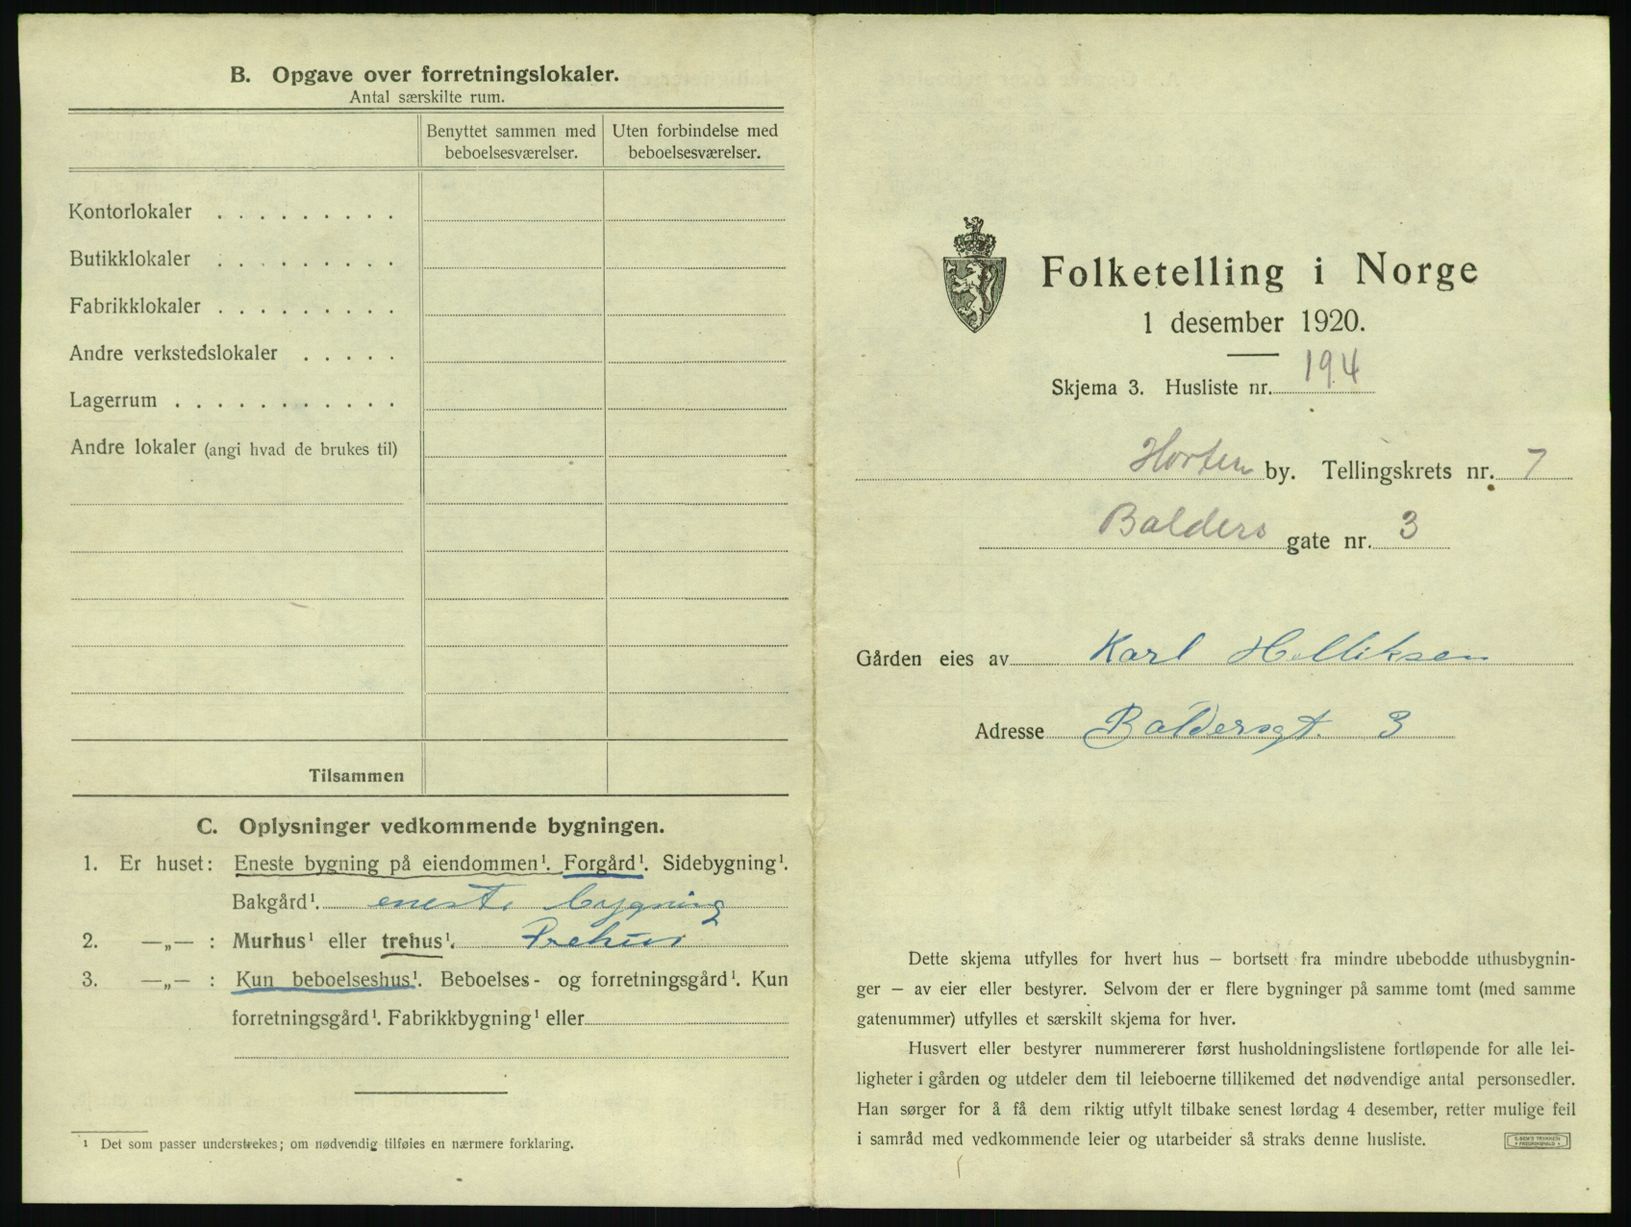 B. Opgave over forretningslokaler.
Antal særskilte rum.
Benyttet sammen med beboelsesværelser.
Uten forbindelse med beboelsesværelser.
Kontorlokaler . . . . . . . . .
Butikklokaler . . . . . . . . .
Fabrikklokaler . . . . . . . . .
Andre verkstedslokaler . . . . .
Lagerrum . . . . . . . . . . .
Andre lokaler (angi hvad de brukes til)
Tilsammen
C. Oplysninger vedkommende bygningen.
1. Er huset: Eneste bygning på eiendommen¹. Forgård¹. Sidebygning¹.
Bakgård¹. eneste bygning
2. —„— : Murhus¹ eller trehus¹. Trehus
3. —„— : Kun beboelseshus¹. Beboelses- og forretningsgård¹. Kun
forretningsgård¹. Fabrikkbygning¹ eller
¹ Det som passer understrekes; om nødvendig tilføies en nærmere forklaring.
Folketelling i Norge
1 desember 1920.
Skjema 3. Husliste nr. 194
Horten by. Tellingskrets nr. 7
Balders gate nr. 3
Gården eies av Karl Helliksen
Adresse Baldersgt. 3
Dette skjema utfylles for hvert hus – bortsett fra mindre ubebodde uthusbygnin-
ger – av eier eller bestyrer. Selvom der er flere bygninger på samme tomt (med samme
gatenummer) utfylles et særskilt skjema for hver.
Husvert eller bestyrer nummererer først husholdningslistene fortløpende for alle lei-
ligheter i gården og utdeler dem til leieboerne tillikemed det nødvendige antal personsedler.
Han sørger for å få dem riktig utfylt tilbake senest lørdag 4 desember, retter mulige feil
i samråd med vedkommende leier og utarbeider så straks denne husliste.